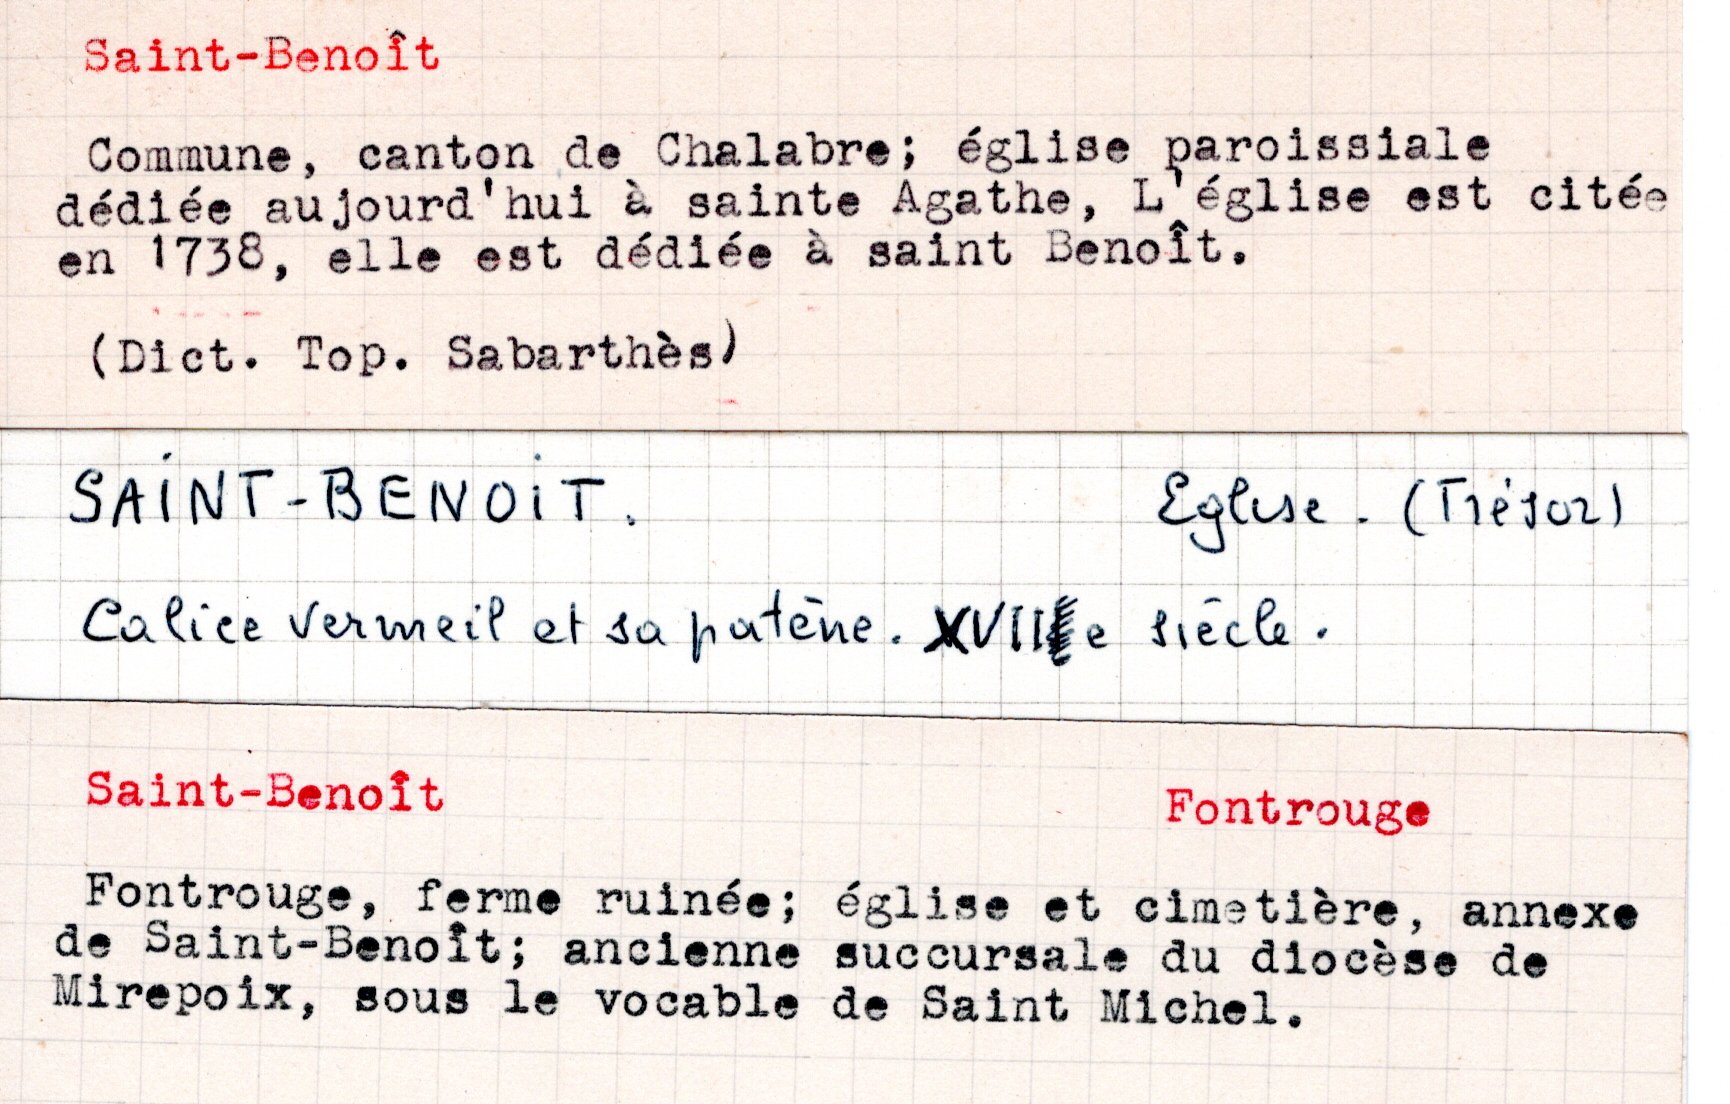 Saint-Benoît
Commune, canton de Chalabre; église paroissiale
dédiée aujourd'hui à sainte Agathe, L'église est citée
en 1738, elle est dédiée à saint Benoît.
(Dict. Top. Sabarthès)
SAINT-BENOIT. Eglise. (Trésor)
Calice vermeil et sa patène. XVIIe siècle.
Saint-Benoît Fontrouge
Fontrouge, ferme ruinée; église et cimetière, annexe
de Saint-Benoît; ancienne succursale du diocèse de
Mirepoix, sous le vocable de Saint Michel.